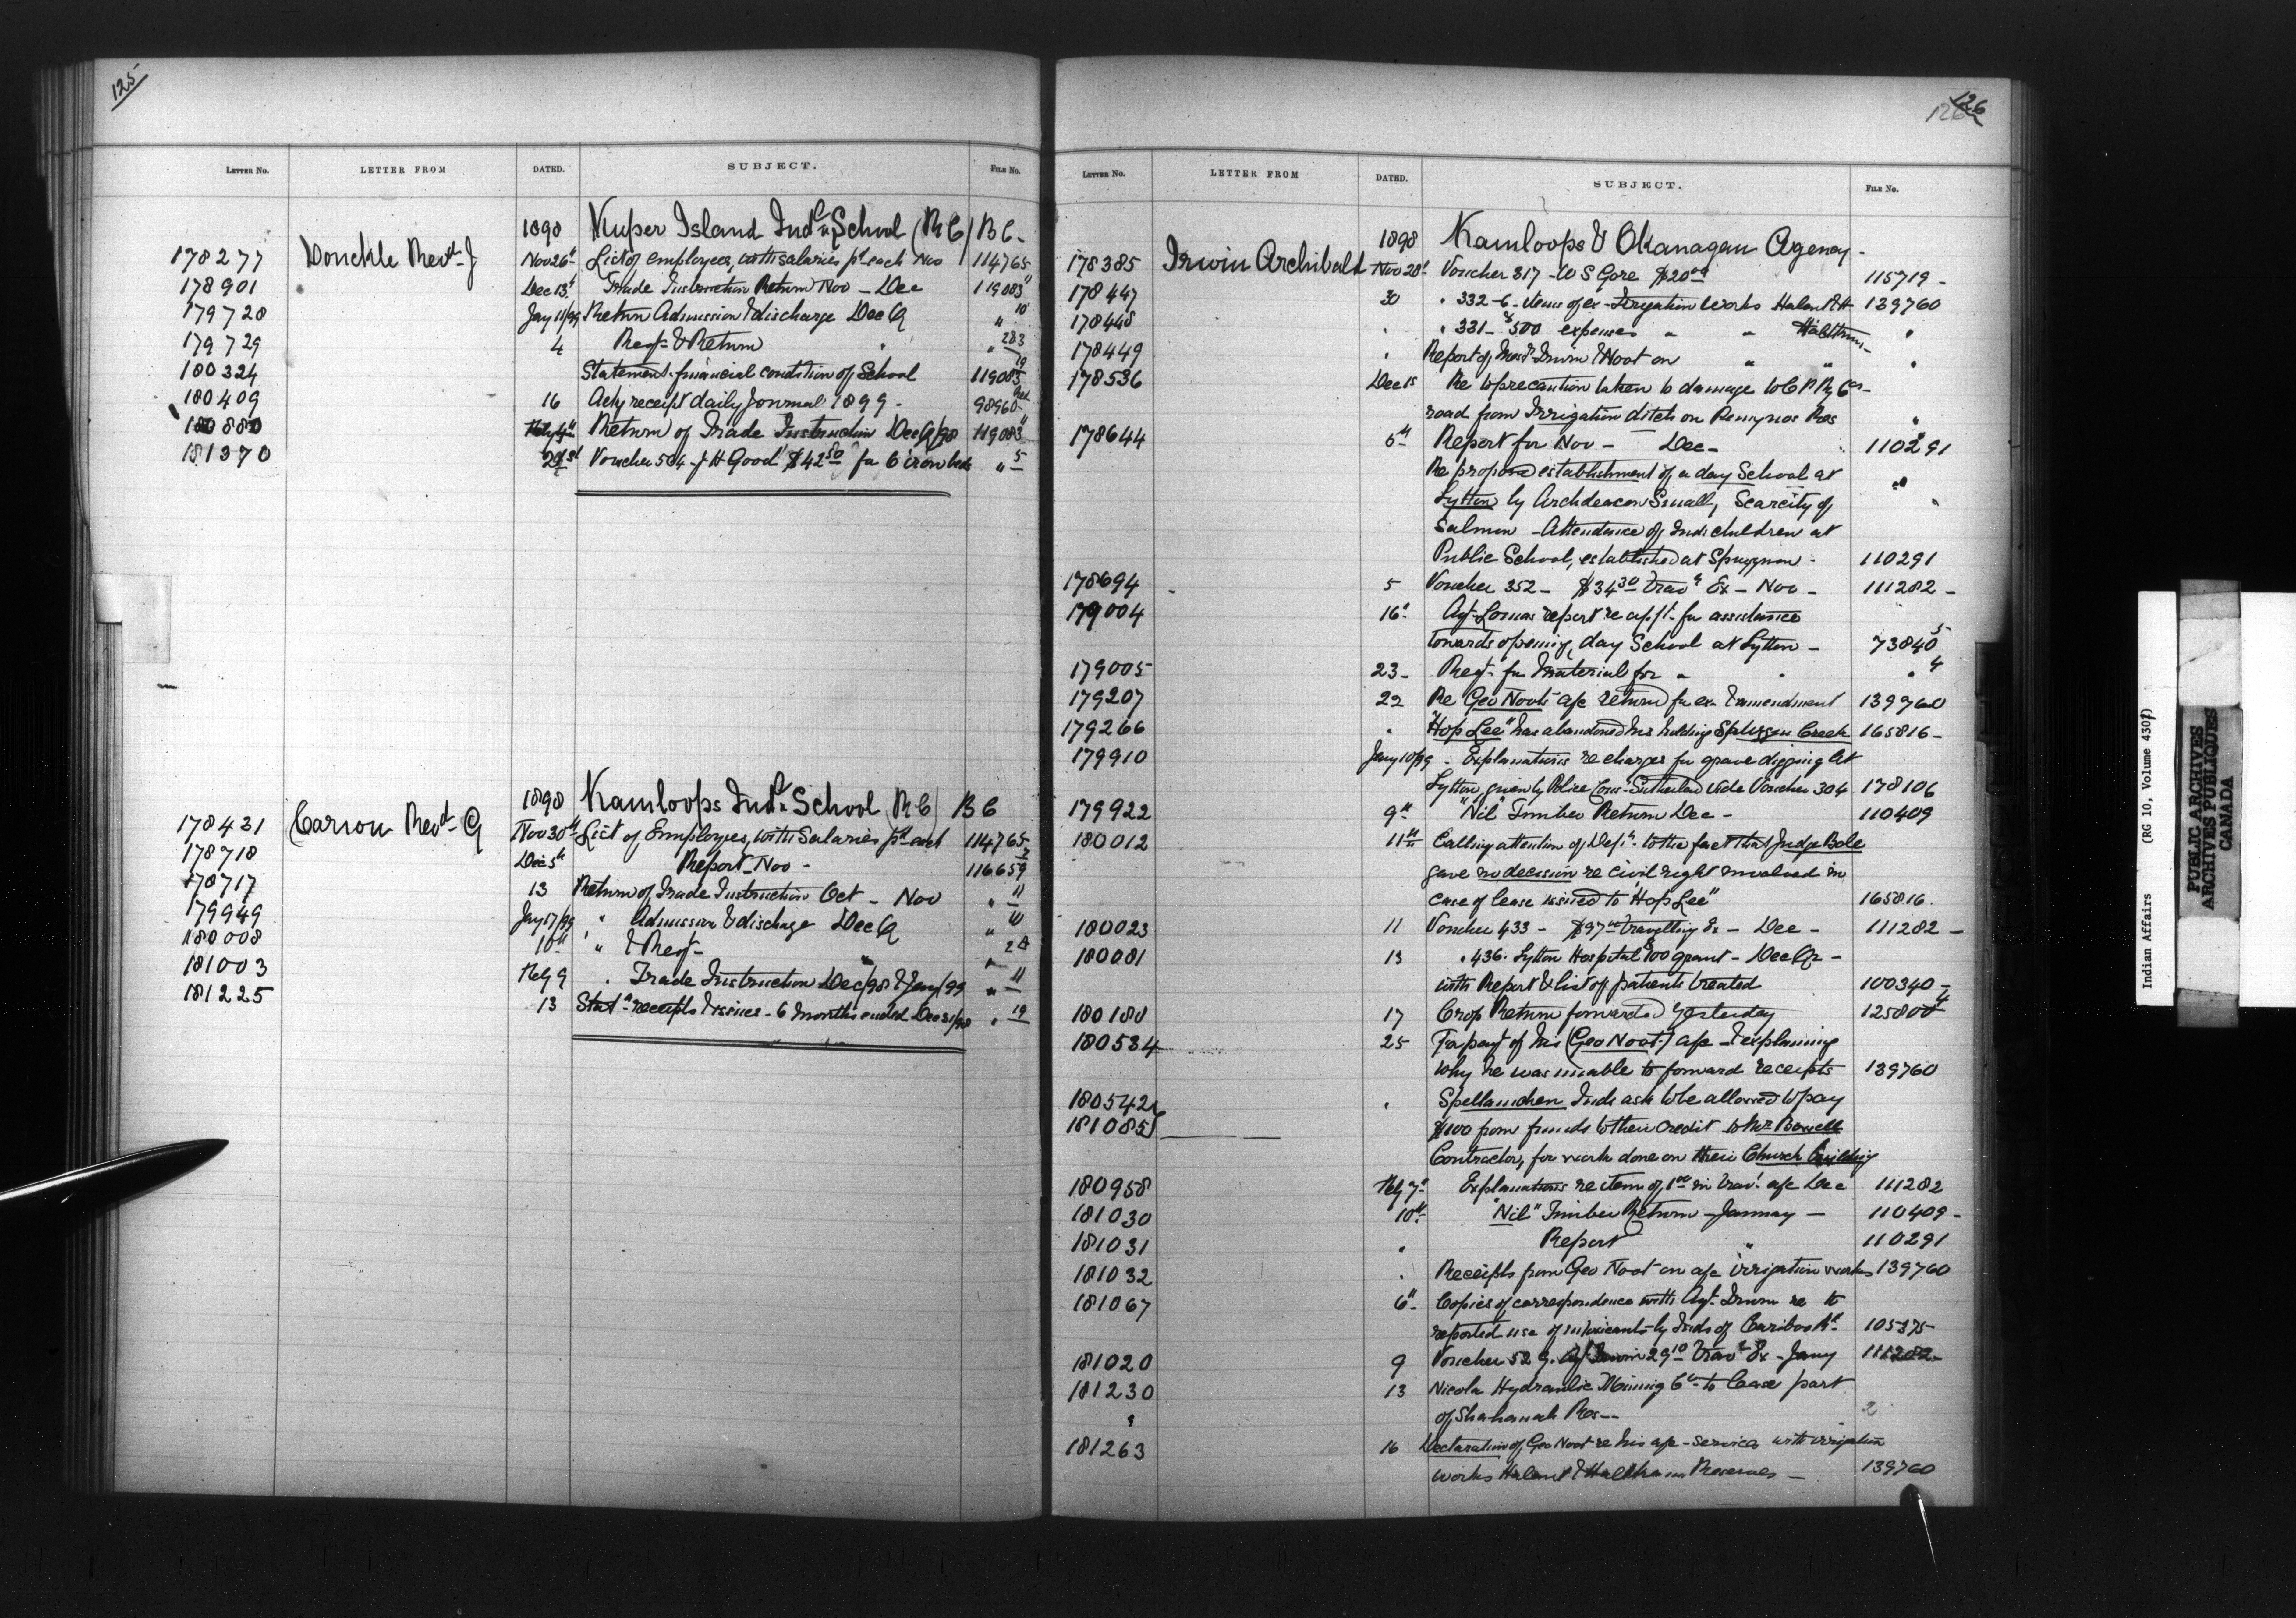 125
LETTER No. LETTER FROM DATED. SUBJECT. FILE No.
1898 Kuper Island Indl School (RC) BC-
178277 Donckle Revd J Nov 26th List of employees, with salaries pd each Nov 114765
178901 Dec 13th Trade Instruction Return Nov - Dec 119083 11
179728 Jany 11/99 Return Admission & discharge Dec Q " 10
179729 4 Reqn & Return " " 283
180324 Statement financial condition of School 119083 19
180409 16 Ackg receipt daily Journal 1899 - 98960
180880 Feby 4th Return of Trade Instruction Dec Q/98 119083 11
181370 21st Voucher 564 - J H Good $42 50 for 6 iron beds " 5
1898 Kamloops Indl School (RC) BC
178431 Carion Revd G Nov 30th List of Employees, with Salaries pd each 114765
178718 Dec 5th Report Nov - 116659 7
178717 13 Return of Trade Instruction Oct - Nov " 11
179949 Jany 7/99 " Admission & discharge Dec Q " 10
180008 10th " & Reqn " " 2
181003 Feby 9 " Trade Instruction Dec/98 & Jany/99 " 11
181225 13 Statt receipts & issues - 6 months ended Dec 31/98 " 19
126
126
LETTER No. LETTER FROM DATED. SUBJECT. FILE No.
1898 Kamloops & Okanagan Agency -
178385 Irwin Archibald Nov 28th Voucher 317 - W S Gore $20 00 115719 -
178447 30 " 332-6 - items of ex - Irrigation Works Halent & 139760
178448 " " 331 - $500 expenses " " Haltkum - "
178449 " Report of Messrs Irwin & Noot on " " "
178536 Dec 1st Re to precaution taken to damage to C P Ry Cos
road from Irrigation ditch on Res "
178644 5th Report for Nov - Dec - 110291
Re proposed establishment of a day School at "
Lytton by Archdeacon Small, Scarcity of "
Salmon - Attendance of Inds children at
Public School, established at 110291
178694 5 Voucher 352 - $34 30 travg Ex - Nov - 111282 -
179004 16th Agt Lomas report re appt for assistance
towards opening day School at Lytton - 73840 5
179005 23 - Reqn for Material for " " " 4
179207 22 Re Geo Noots a/c returned for ex & amendment 139760
179266 " "Hop Lee" has abandoned his holding Spuzzum Creek 165816 -
179910 Jany 10/99 - Explanations re charges for grave digging at
Lytton, given by Police Cons Sutherland vide Voucher 304 178106
179922 9th "Nil" Timber Return Dec - 110409
180012 11th Calling attention of Dept to the fact that Judge Bole
gave no decision re civil right involved in
case of lease issued to "Hop Lee" 165816.
180023 11 Voucher 433 - $97 00 travelling Ex - Dec - 111282 -
180081 13 " 436 - Lytton Hospital $100 grant - Dec Qr -
with Report & list of patients treated 100340 -
180180 17 Crop Return forwarded yesterday 125800 4
180534 25 For payt of his (Geo Noot) a/c - & explaining
why he was unable to forward receipts 139760
180542 " Spellamcheen Inds ask to be allowed to pay
181085 $100 from funds to their credit to Mr
Contractor, for work done on their Church Building
180958 Feby 7th Explanations re item of 1 00 in travg a/c Dec 111282
181030 10th "Nil" Timber Return - January - 110409 -
181031 " Report " 110291
181032 " Receipts from Geo Noot on a/c irrigation works 139760
181067 6th Copies of correspondence with Agt Irwin re to
reported use of intoxicants by Inds of Cariboo Rd 105375
181020 9 Voucher 529. Agt Irwin 29 10 travg Ex - Jany 111282 -
181230 13 Nicola Hydraulic Mining Co to lease part
" of Shahanih Res - - 2
181263 16 Declaration of Geo Noot re his a/c - services with irrigation
works Halent & Haltkum Reserves - 139760
Indian Affairs (RG 10, Volume 4307)
PUBLIC ARCHIVES
ARCHIVES PUBLIQUES
CANADA